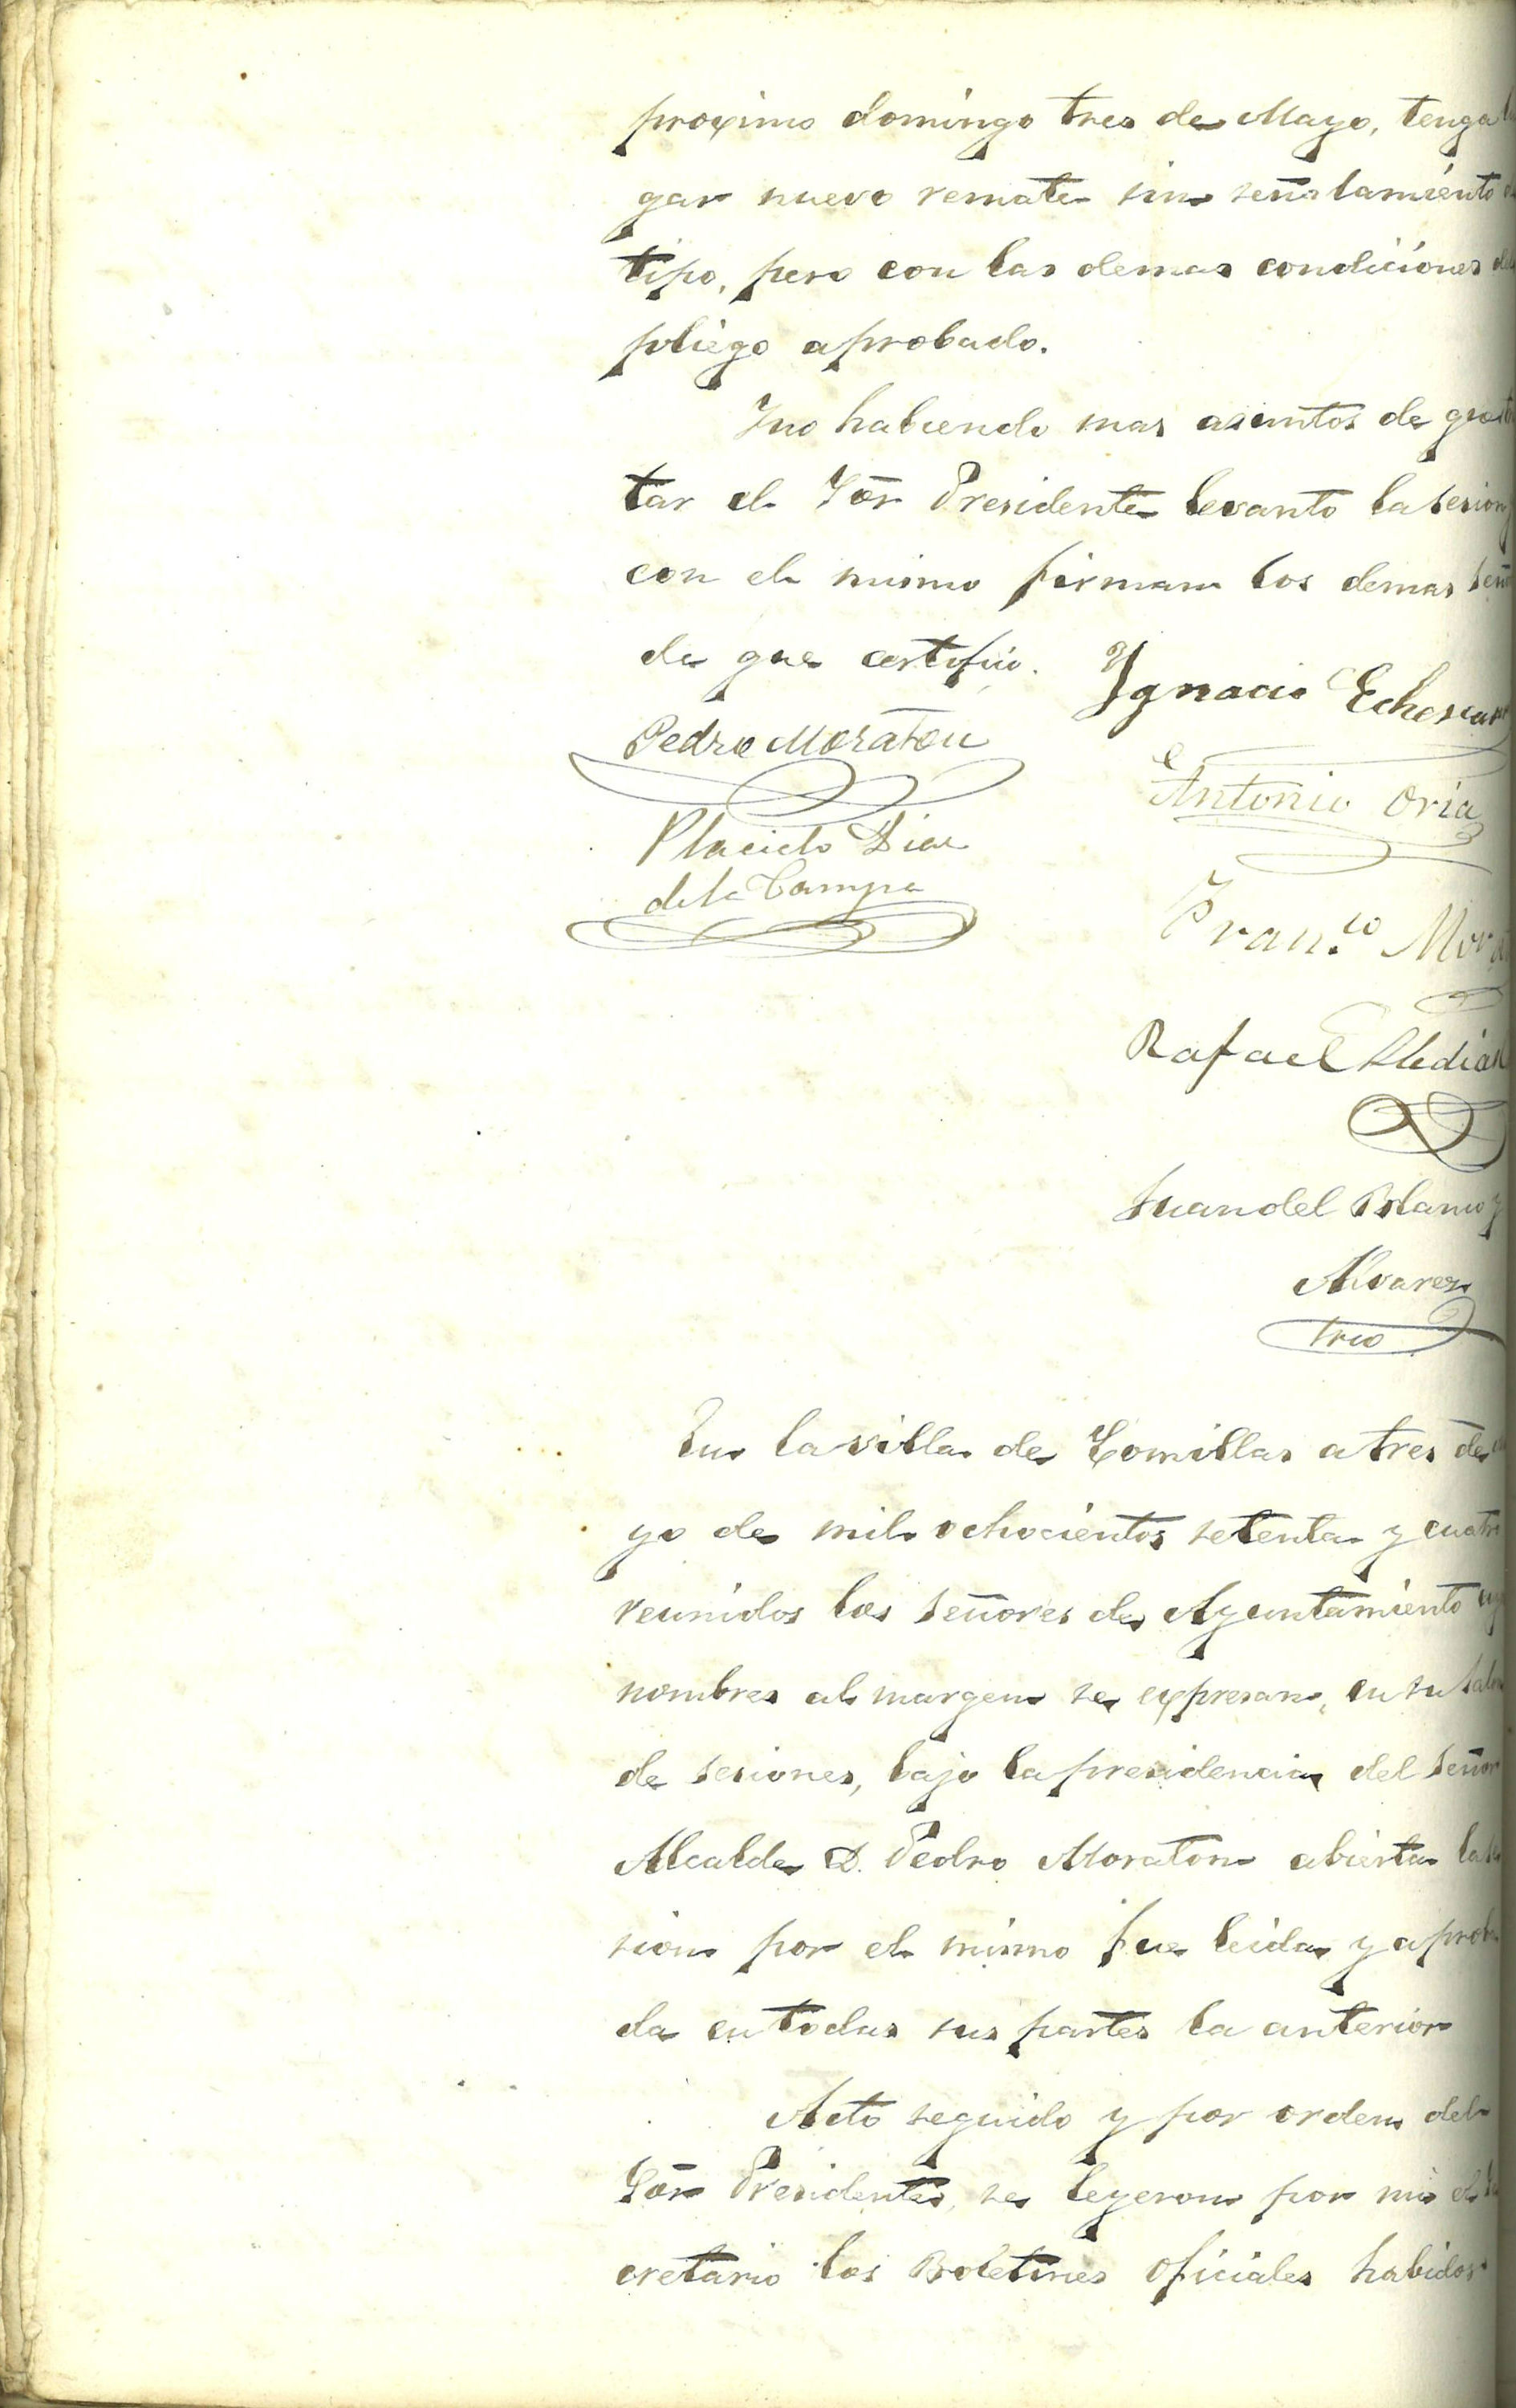 proximo domingo tres de Mayo, tenga
gar nuevo remate sin señalamiento
tipo, pero con las demas condiciones
pliego aprobado.
Y no habiendo mas asuntos de
tar el Sōr Presidente levanto la sesion
con el mismo firman los demas
de que certifico.
Ignacio
Pedro Moraton
Antonio Oria
Placido Diaz
de la Campa
Fran.co
Rafael
Juan del Blanco y
Alvarez
Srio
En la villa de Comillas a tres de
yo de mil ochocientos setenta y cuatro
reunidos los señores de Ayuntamiento
nombres al margen se expresan, en su
de sesiones, bajo la presidencia del señor
Alcalde D. Pedro Moraton abierta la
sion por el mismo fue leida y
da en todas sus partes la anterior
Acto seguido y por orden del
Sōr Presidente, se leyeron por mi el
cretario los Boletines oficiales habidos